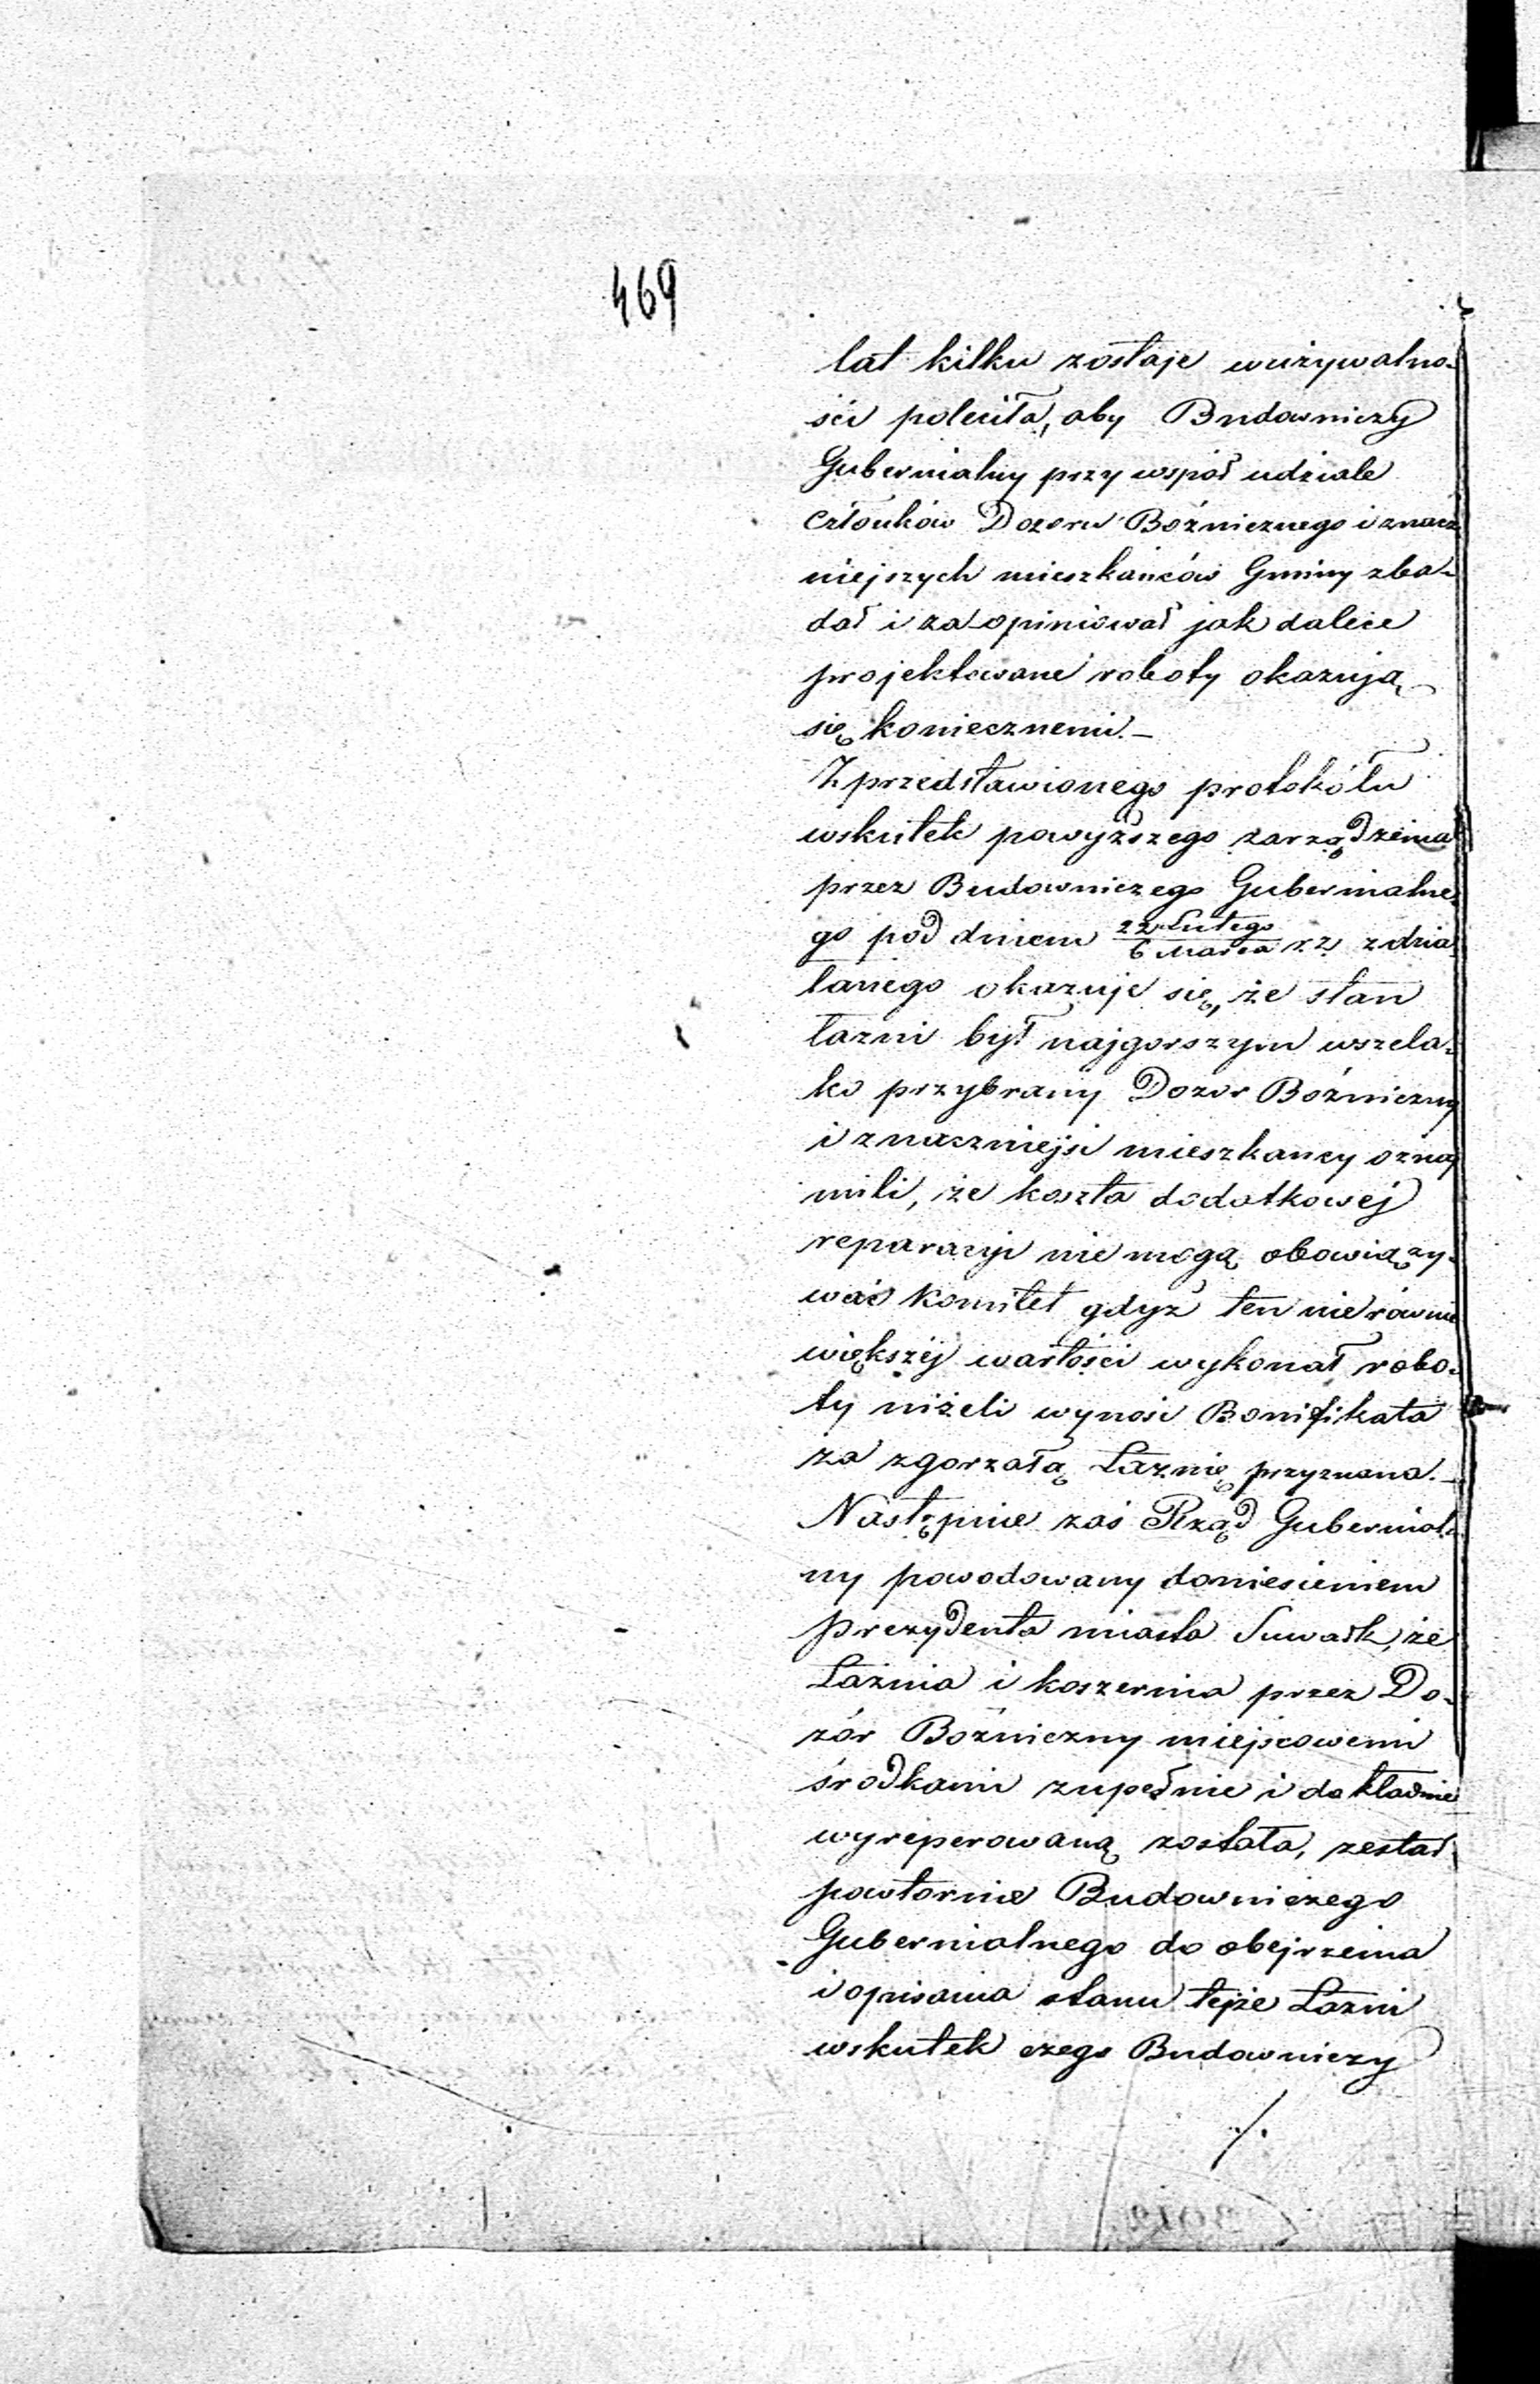 469
lat kilku zostaje w używalno-
ści poleciła, aby Budowniczy
Gubernialny przy współ udziale
członków Dozoru Bożnicznego i znacz
niejszych mieszkańców Gminy zba-
dał i zaopiniował jak dalece
projektowane roboty okazują
się koniecznemi.-
Z przedstawionego protokółu
wskutek powyższego zarządzenia
przez Budowniczego Gubernialne-
go pod dniem 22 Lutego/6 Marca r.z. zdzia-
łanego okazuje się, że stan
łazni był najgorszym wszela-
ko przybrany Dozor Bóżniczny
i znaczniejsi mieszkancy oznaj
mili, że koszta dodatkowej
reparacyi nie mogą obowiązy-
wać Komitet gdyż ten nierównie
większej wartości wykonał robo-
ty niżeli wynosi Bonifikata
za zgorzałą Łaznię przyznana.-
Następnie zaś Rząd Gubernial-
ny powodowany doniesieniem
Prezydenta miasta Suwałk, że
Łaźnia i koszernia przez Do-
zór Bożniczny miejscowemi
środkami zupełnie i dokładnie
wyreperowaną została, zesłał
powtornie Budowniczego
Gubernialnego do obejrzenia
i opisania stanu tejże Łazni
wskutek czego Budowniczy
./.